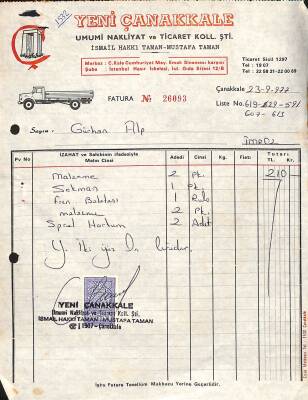 YENİ ÇANAKKALE
UMUMİ NAKLİYAT ve TİCARET KOLL. ŞTİ.
İSMAİL HAKKI TAMAN-MUSTAFA TAMAN
Merkez : Ç.Kale Cumhuriyet May. Emek Sineması karşısı
Şube : İstanbul Hasır İskelesi, Ist. Gıda Sitesi 12/B
Ticaret Sicil 1297
Tel : 1907
Tel : 22 58 31-22 00 89
FATURA № 26093
Çanakkale 23-9-977
Liste No. 619-629-591
607-613
Sayın : Gürhan Alp
İmroz
Pv No
İZAHAT ve Sahibinin ifadesiyle Malın Cinsi
Adedi
Cinsi
Kg.
Fiatı
Tutarı
TL. Kr.
Malzeme 2 Pk. 210
Sekman 1 Pk
Fren Balatası 1 Rulo
malzeme 2 Pk.
Spral Hortum 2 Adet
Y. İki yüz On liradır.
YENİ ÇANAKKALE
Umumi Nakliyat ve Ticaret Koll. Şti.
İSMAİL HAKKI TAMAN-MUSTAFA TAMAN
1907-Çanakkale
İşbu Fatura Tesellüm Makbuzu Yerine Geçerlidir.